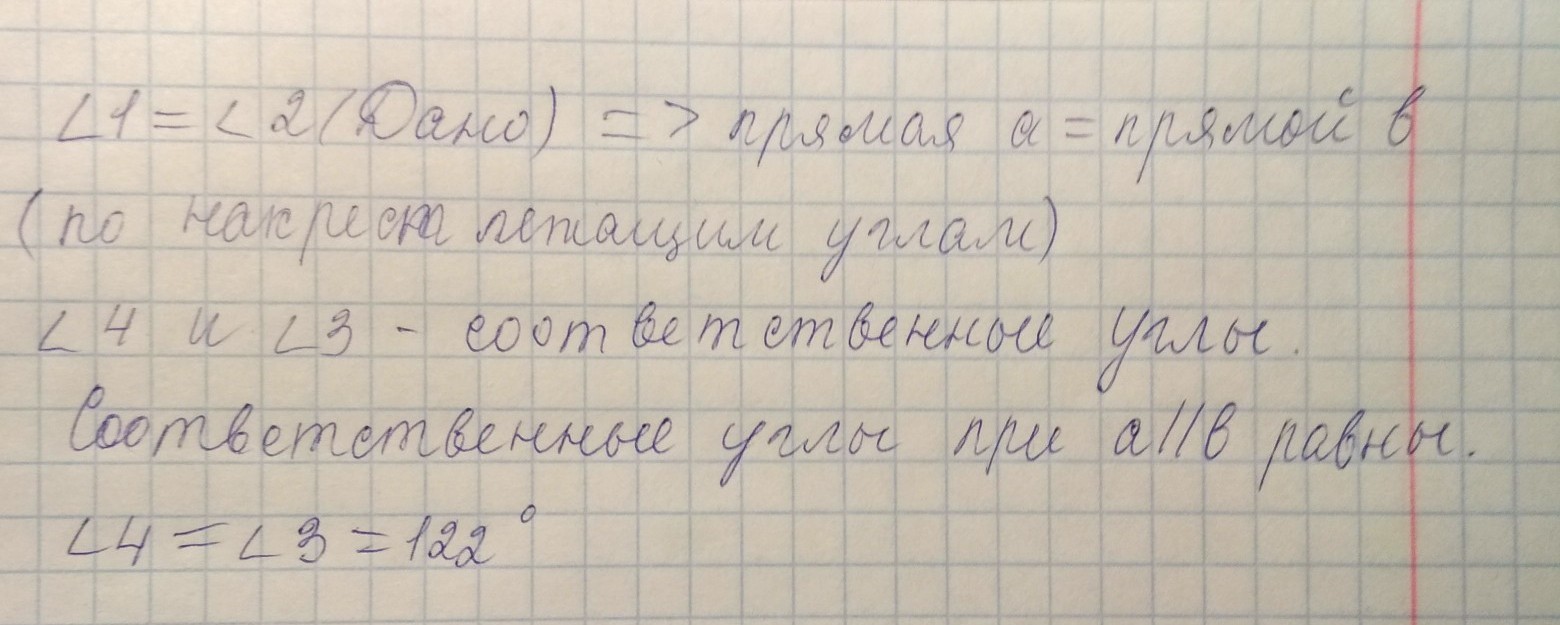 ∠1 = ∠2 (Дано) => прямая a = прямой в
(по накрест лежащим углам)
∠4 и ∠3 - соответственные углы.
Соответственные углы при a||в равны.
∠4 = ∠3 = 122°